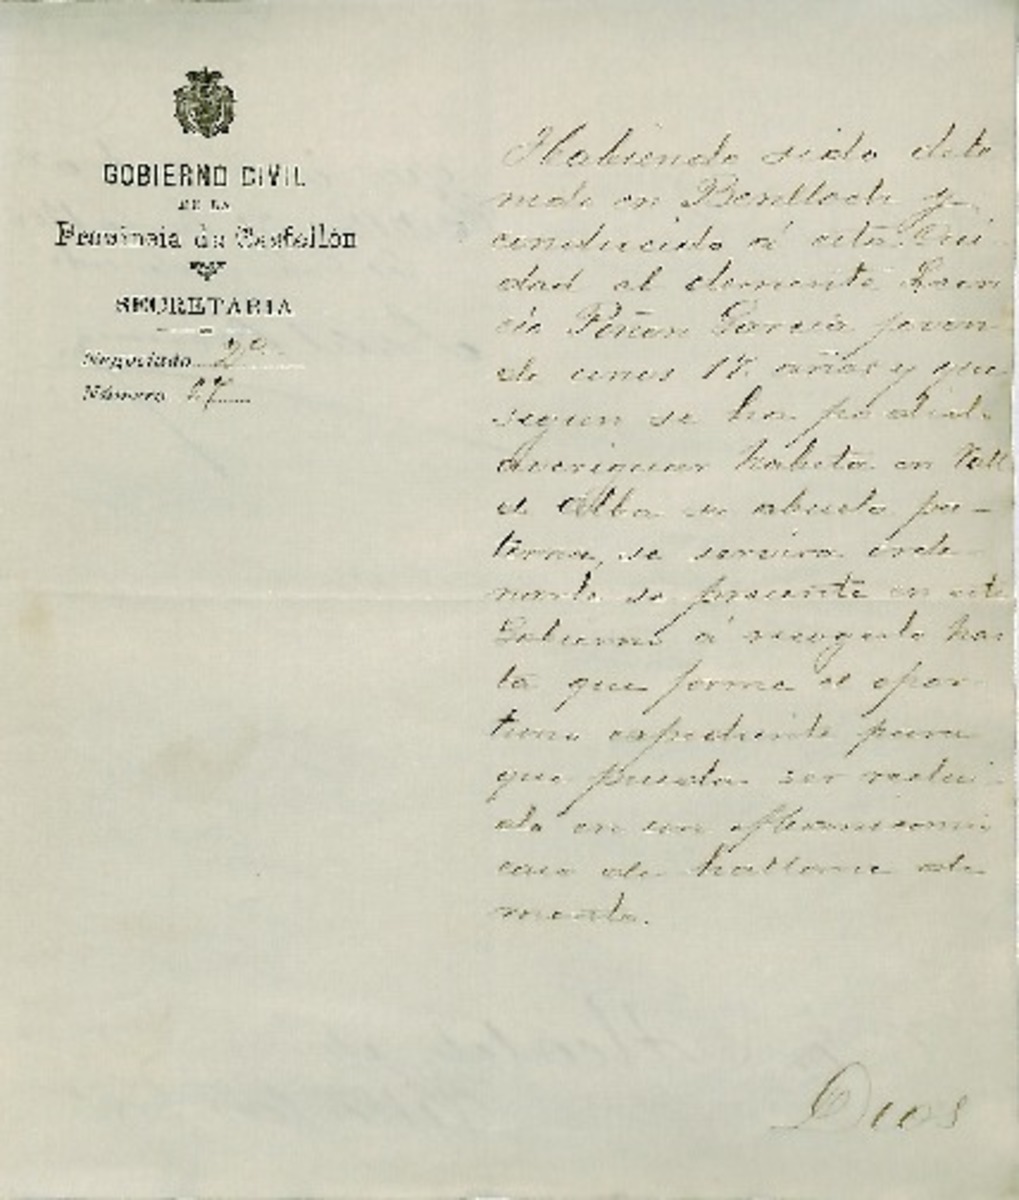 GOBIERNO CIVIL
DE LA
Provincia de Castellón
SECRETARIA
Negociado 2º
Número 27
Habiendo sido dete
nido en Benlloch y
conducido á esta Ciu-
dad al demente
Piñon García joven
de unos años y que
segun se ha podido
averiguar habita en Vall
d' Alba su abuelo pa-
terno, se servirá orde
narle se presente en este
Gobierno á recogerlo has
ta que forme el opor-
tuno expediente para
que pueda ser reclui-
do en un Manicomio
caso de hallarse de
mente.
Dios